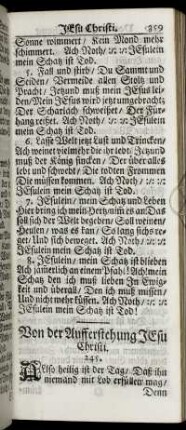 JEsu Christi. 859
Sonne wimmert / Kein Mond mehr
schimmert. Ach Noth / :/: :/: JEsulein
mein Schatz ist Tod.
5. Fall und stirb / Du Sammt und
Seiden / Vermodre allen Stoltz und
Pracht / Jetzund muß mein JEsus lei-
den / Mein JEsus wird jetzt umgebracht:
Der Scharlach schweisset / Der Für-
hang reisset. Ach Noth / :/: :/: JEsulein
mein Schatz ist Tod.
6. Lasse Welt jetzt Lust und Trincken /
Ach weinet vielmehr die ihr lebt: Jetzund
muß der König sincken / Der über alles
lebt und schwebt / Die rodten Frommen
Die müssen kommen. Ach Noth / :/: :/:
JEsulein mein Schatz ist Tod.
7. JEsulein / mein Schatz und Leben
Hier bring ich mein Hertz nim es an! Das
soll sich der Welt begeben / Soll weinen
Heulen / was es kan / So lang sichs re-
get / Und sich beweget. Ach Noth / :/: :/:
JEsulein mein Schatz ist Tod.
8. JEsulein / mein Schatz ist blieben
Ach jämerlich an einem Pfahl! Ach! mein
Schatz den ich muß lieben In Ewig-
keit und überall / Den ich muß missen /
Und nicht mehr küssen. Ach Noth / :/: :/:
JEsulein mein Schatz ist Tod!
Von der Aufferstehung JEsu
Christi.
245.
ALso heilig ist der Tag / Daß ihn
niemand mit Lob erfüllen mag /
Denn